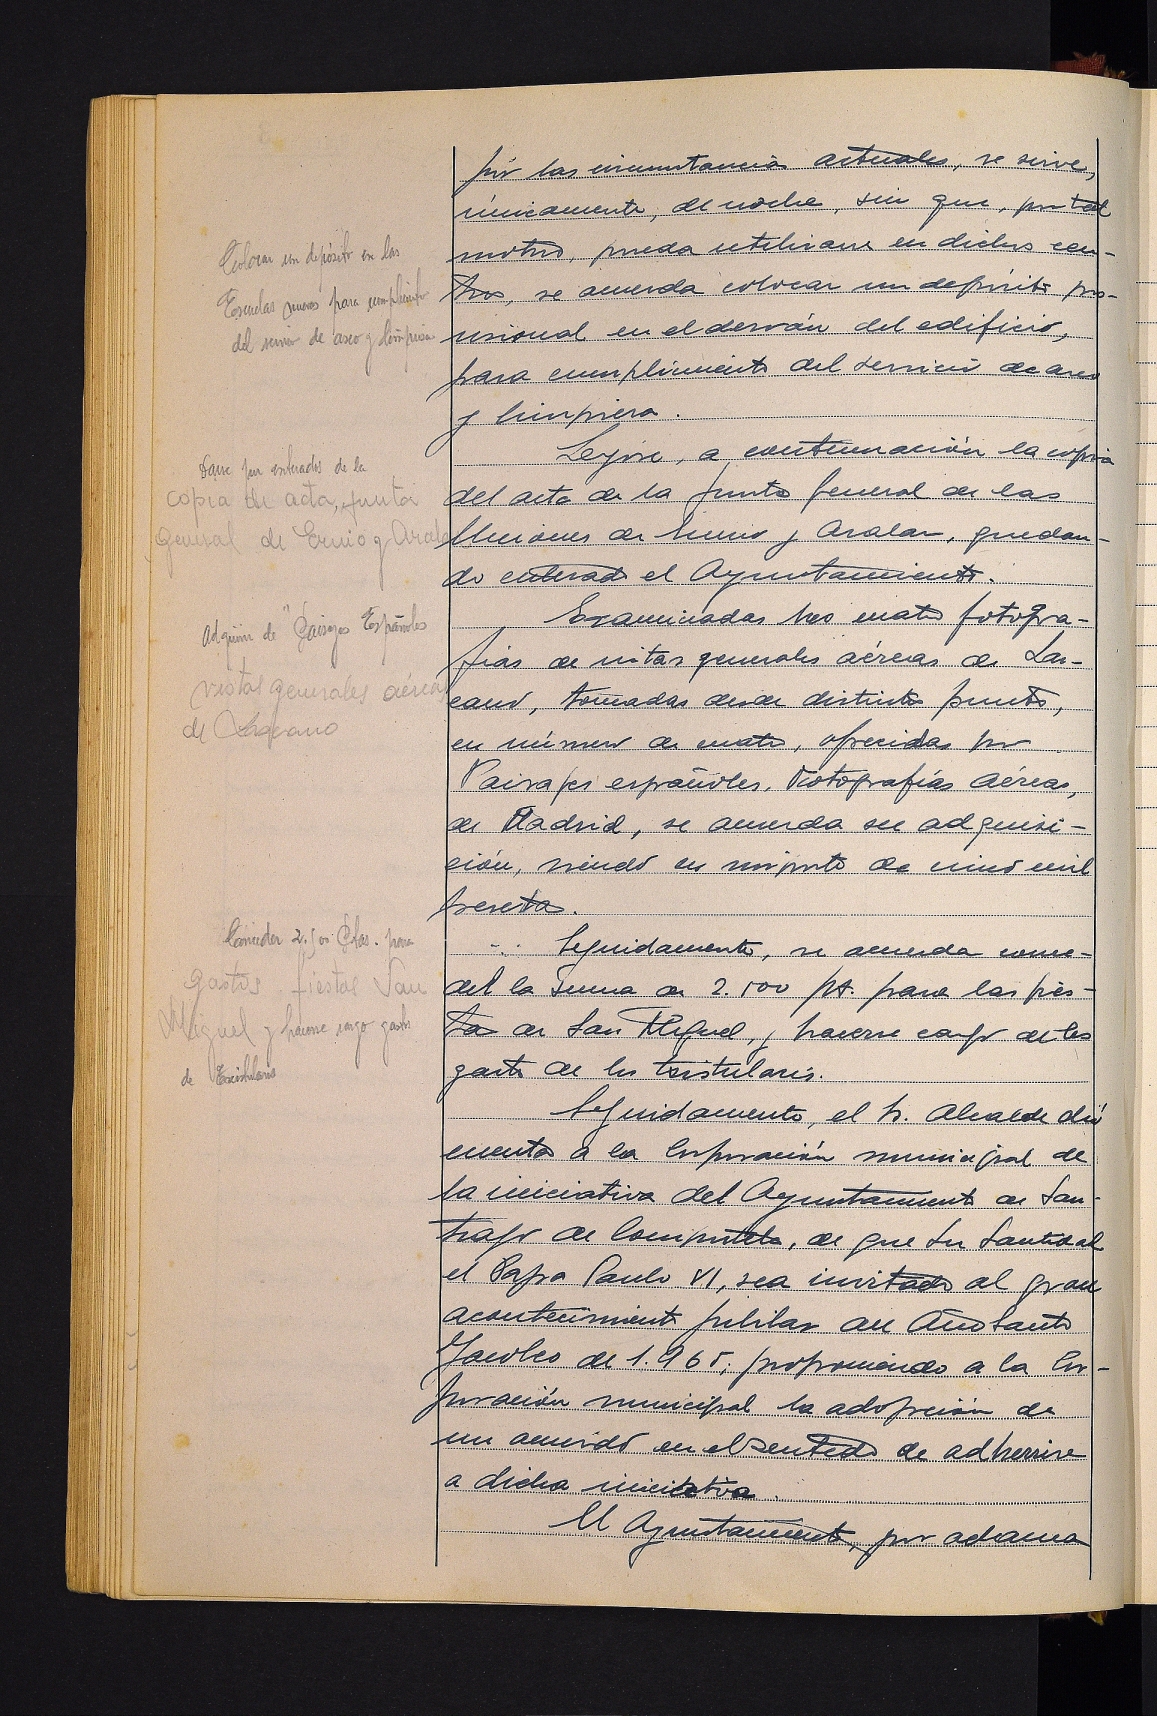 por las circunstancias actuales, se sirve,
únicamente, de noche, sin que, por tal
motivo, pueda utilizarse en dichos cen-
tros, se acuerda colocar un depósito pro-
visional en el desván del edificio,
para cumplimiento del servicio de aseo
y limpieza.
Leyóse, a continuación la copia
del acta de la Junta general de las
Uniones de Ernio y Aralar, quedan-
do enterado el Ayuntamiento.
Examinadas las cuatro fotogra-
fías de vistas generales aéreas de Laz-
cano, tomadas desde distintos puntos,
en número de cuatro, ofrecidas por
Paisajes españoles, Fotografías aéreas,
de Madrid, se acuerda su adquisi-
ción, siendo su importe de cinco mil
pesetas.
Seguidamente, se acuerda conce-
der la suma de 2.500 pts. para las fies-
tas de San Miguel, y hacerse cargo de los
gastos de los txistularis.
Seguidamente, el Sr. Alcalde dió
cuenta a la Corporación municipal de
la iniciativa del Ayuntamiento de San-
tiago de Compostela, de que Su Santidad
el Papa Paulo VI, sea invitado al gran
acontecimiento jubilar del Año Santo
Jacobeo de 1.965, proponiendo a la Cor-
poración municipal la adopción de
un acuerdo en el sentido de adherirse
a dicha iniciativa.
El Ayuntamiento, por aclama
Colocar un depósito en las
Escuelas nuevas para cumplimiento
del servicio de aseo y limpieza
Darse por enterados de la
copia de acta, junta
general de Ernio y Aralar
Adquirir de "Paisajes Españoles
vistas generales aéreas
de Lazcano
Conceder 2.500 Ptas. para
gastos fiestas San
Miguel y hacerse cargo gastos
de Txistularis